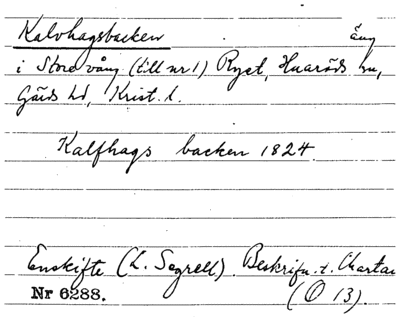 Kalvhagsbacken äng
i Store vång (till nr 1) Ryet, Huaröds sn,
Gärds hd, Krist. l.
Kalfhags backen 1824.
Enskifte (L. Segrell). Beskrifn. t. Chartan
Nr 6288. (O 13).